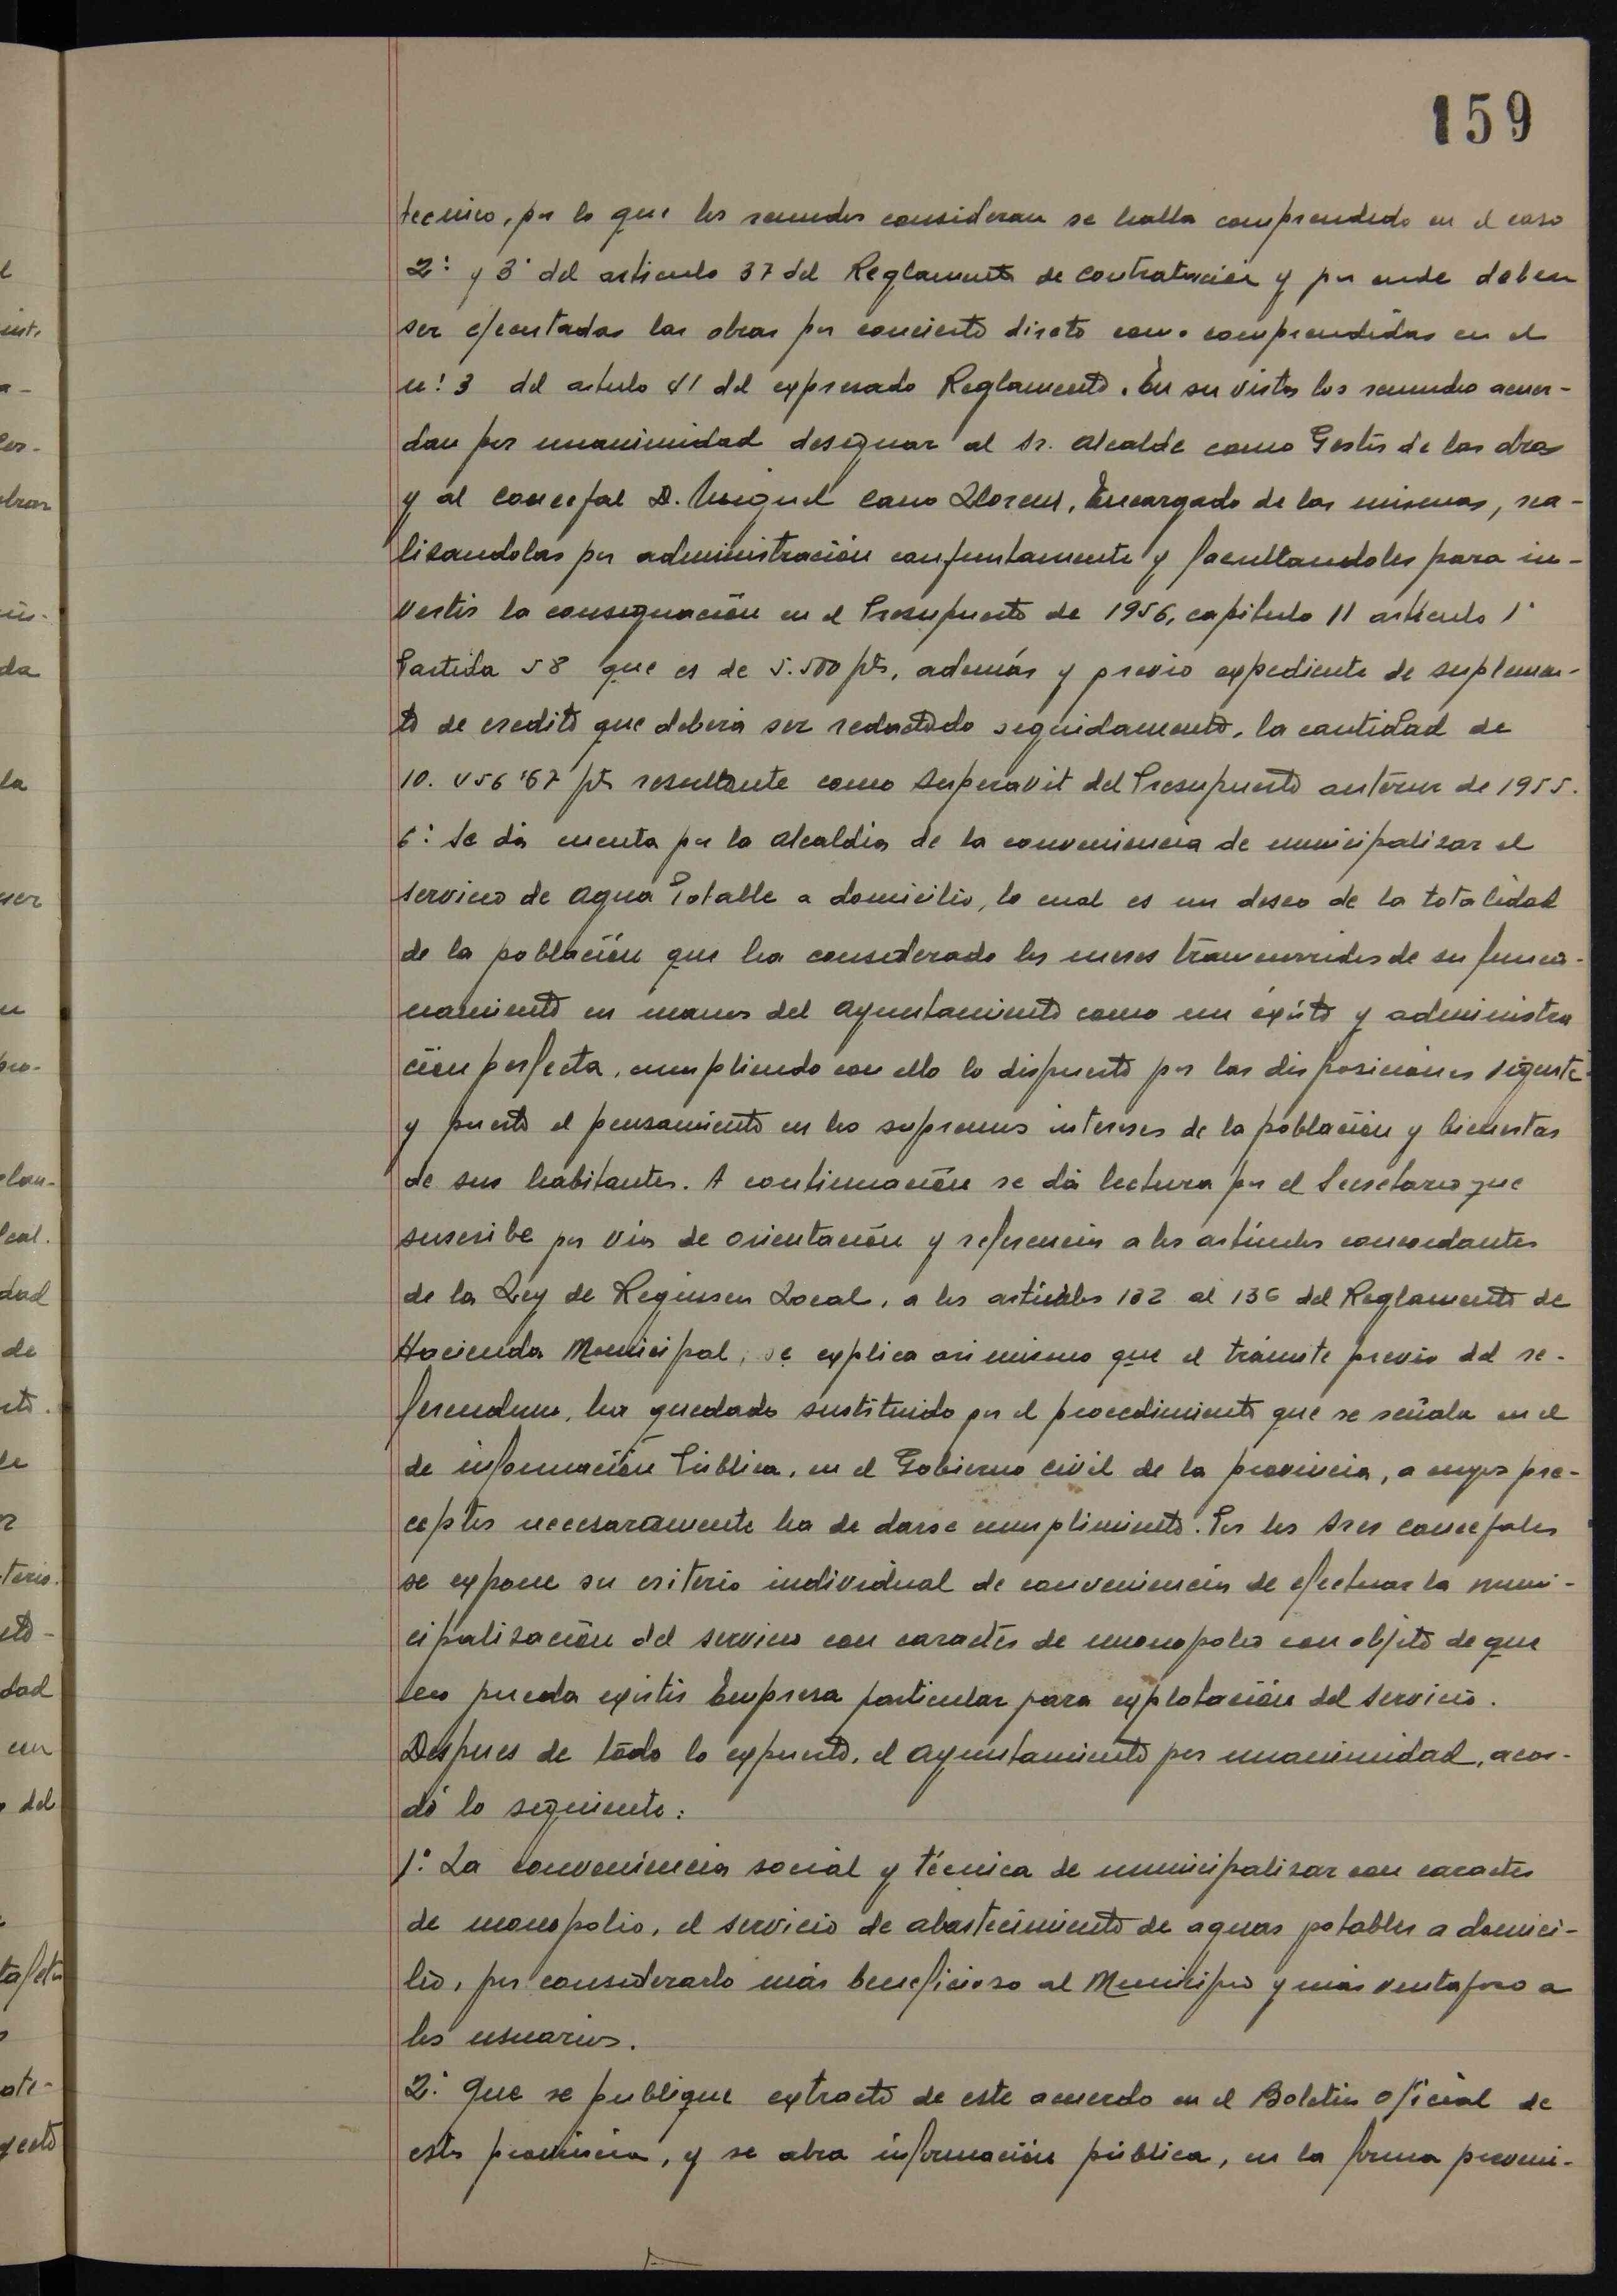 159
tecnico, por lo que los reunidos consideran se halla comprendido en el caso
2º y 3º del articulo 37 del Reglamento de contratación y por ende deben
ser ejecutadas las obras por concierto direto como comprendidas en el
nº 3 del artulo 41 del expresado Reglamento. En su vista los reunidos acuer-
dan por unanimidad designar al Sr. Alcalde como Gestor de las obras
y al Concejal D. Miguel Cano Llorens, Encargado de las mismas, rea-
lisandolas por administración conjuntamente y facultandoles para in-
vertir la consignación en el Presupuesto de 1956, capitulo 11 articulo 1º
Partida 58 que es de 5.500 pts, además y previo expediente de suplemen-
to de credito que deberá ser redactado seguidamente, la cantidad de
10.456'67 pts resultante como Superavit del Presupuesto anterior de 1955.
6º Se dá cuenta por la Alcaldia de la conveniencia de municipalisar el
servicio de Agua Potable a domicilio, lo cual es un deseo de la totalidad
de la población que ha considerado los meses transcurridos de su funcio-
namiento en manos del Ayuntamiento como un éxito y administra
ción perfecta, cumpliendo con ello lo dispuesto por las disposiciones vigente
y puesto el pensamiento en los supremos intereses de la población y bienestar
de sus habitantes. A continuación se dá lectura por el Secretario que
suscribe por via de orientación y referencia a los artículos concordantes
de la Ley de Regimen Local, a los artículos 132 al 136 del Reglamento de
Hacienda Municipal, se explica asimismo que el trámite previo del re-
ferendum, ha quedado sustituido por el procedimiento que se señala en el
de información Pública, en el Gobierno civil de la provincia, a cuyos pre-
ceptos necesaramente ha de darse cumplimiento. Por los Sres concejales
se expone su criterio individual de conveniencia de efectuar la muni-
cipalisación del servicio con caracter de monopolio con objeto de que
no pueda existir Empresa particular para explotación del servicio.
Despues de todo lo expuesto, el Ayuntamiento por unanimidad, acor-
dó lo seguiente:
1º La conveniencia social y técnica de municipalisar con caracter
de monopolio, el servicio de abastecimiento de aguas potables a domici-
lio, por considerarlo más beneficioso al Municipio y más ventajoso a
los usuarios.
2º Que se publique extracto de este acuerdo en el Boletin oficial de
esta provincia, y se abra información pública, en la forma preveni-